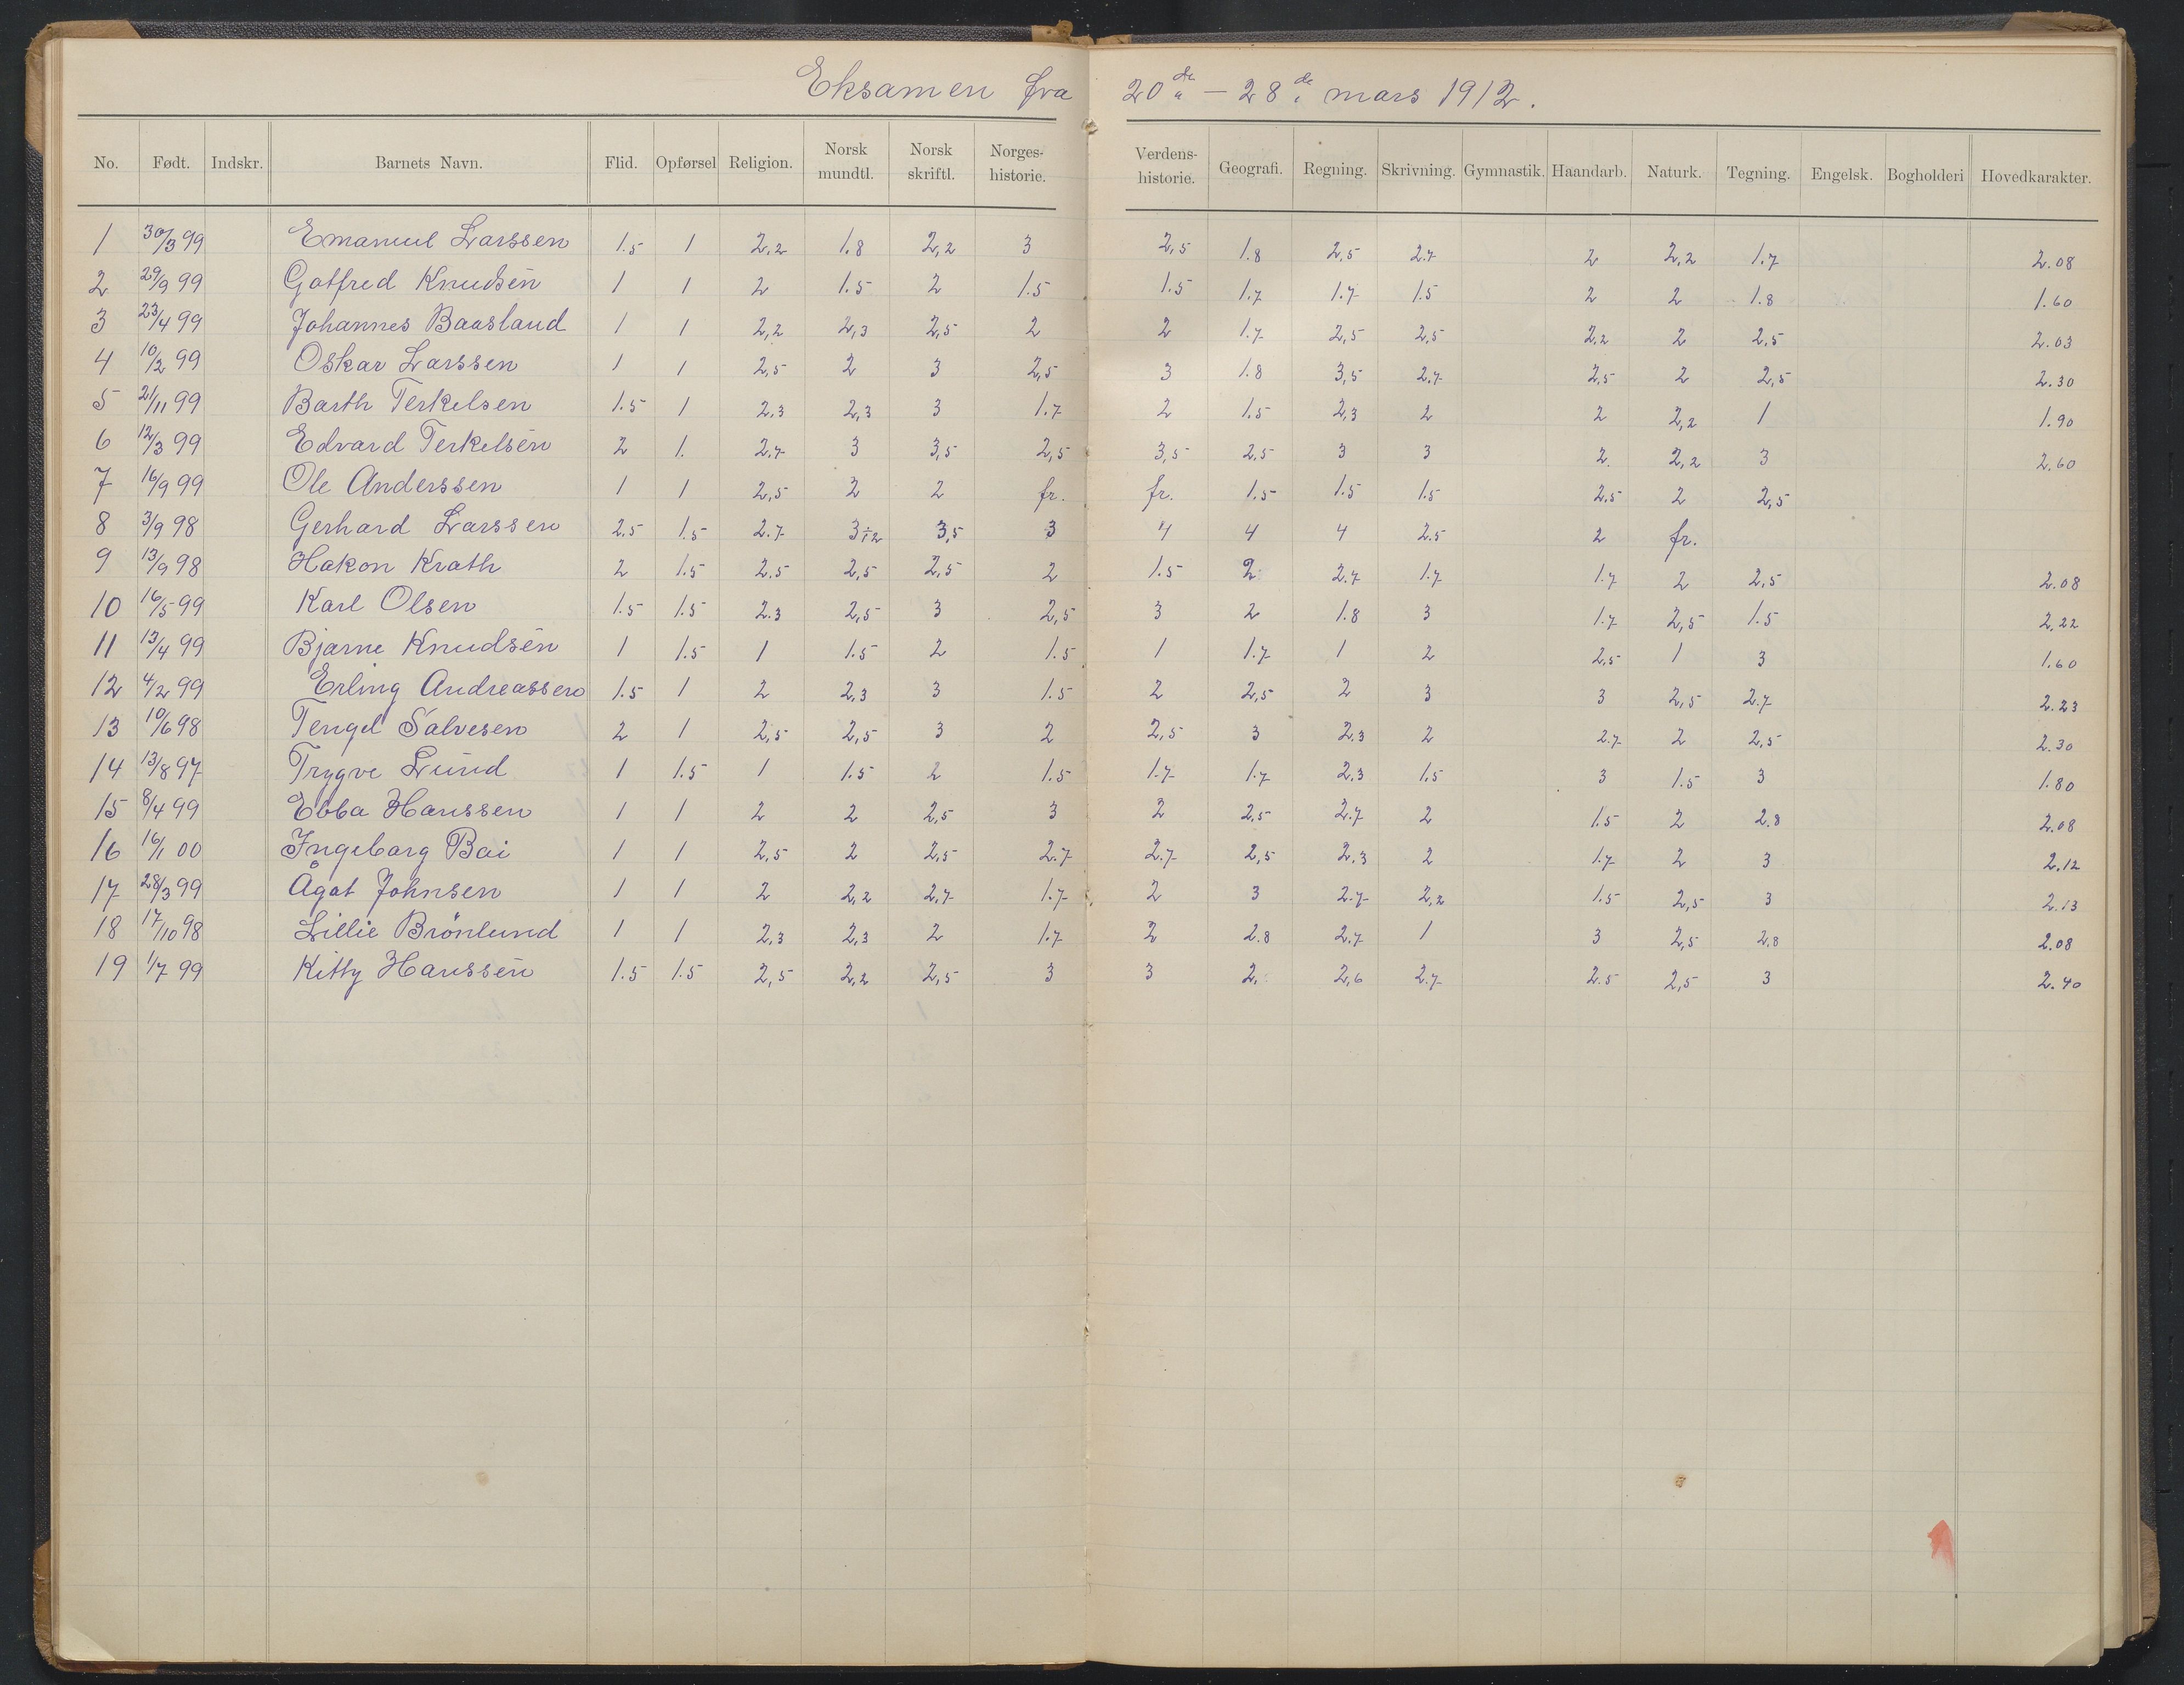 Eksamen fra 20de – 28de mars 1912.
No. Født. Indskr. Barnets Navn. Flid. Opførsel Religion. Norsk mundtl. Norsk skriftl. Norges-historie. Verdens-historie. Geografi. Regning. Skrivning. Gymnastik. Haandarb. Naturk. Tegning. Engelsk. Bogholderi Hovedkarakter.
1 30/3 99 Emanuel Larssen 1.5 1 2,2 1.8 2,2 3 2,5 1.8 2,5 2.7 2 2,2 1.7 2.08
2 29/9 99 Gotfred Knudsen 1 1 2 1.5 2 1.5 1.5 1.7 1.7 1.5 2 2 1.8 1.60
3 23/4 99 Johannes Baasland 1 1 2,2 2,3 2,5 2 2 1.7 2,5 2,5 2,2 2 2,5 2.03
4 10/2 99 Oskar Larssen 1 1 2,5 2 3 2,5 3 1.8 3,5 2.7 2,5 2 2,5 2.30
5 21/11 99 Barth Terkelsen 1.5 1 2.3 2,3 3 1.7 2 1.5 2,3 2 2 2,2 1 1.90
6 12/3 99 Edvard Terkelsen 2 1. 2.7 3 3,5 2,5 3,5 2.5 3 3 2. 2,2 3 2.60
7 16/9 99 Ole Anderssen 1 1 2,5 2 2 fr. fr. 1.5 1.5 1.5 2,5 2 2,5
8 3/9 98 Gerhard Larssen 2.5 1.5 2.7 3÷2 3,5 3 4 4 4 2.5 2 fr.
9 13/9 98 Hakon Krath 2 1.5 2.5 2,5 2,5 2 1.5 2 2.7 1.7 1.7 2 2,5 2.08
10 16/5 99 Karl Olsen 1.5 1.5 2.3 2,5 3 2,5 3 2 1.8 3 1.7 2,5 1.5 2.22
11 13/4 99 Bjarne Knudsen 1 1.5 1 1.5 2 1.5 1 1.7 1 2 2,5 1 3 1.60
12 4/2 99 Erling Andreassen 1.5 1 2 2,3 3 1.5 2 2,5 2 3 3 2,5 2.7 2.23
13 10/6 98 Tengel Salvesen 2 1 2,5 2,5 3 2 2,5 3 2.3 2 2.7 2 2,5 2.30
14 13/8 97 Trygve Lund 1 1.5 1 1.5 2 1.5 1.7 1.7 2.3 1.5 3 1.5 3 1.80
15 8/4 99 Ebba Hanssen 1 1 2 2 2,5 3 2 2.5 2.7 2 1.5 2 2.8 2.08
16 16/1 00 Ingeborg Bai 1 1 2,5 2 2,5 2.7 2.7 2,5 2.3 2 1.7 2 3 2.12
17 28/3 99 Ågat Johnsen 1 1 2 2,2 2,7 1.7 2 3 2.7 2,2 1.5 2,5 3 2.13
18 17/10 98 Lillie Brönlund 1 1 2,3 2,3 2 1.7 2 2.8 2.7 1 3 2,5 2.8 2.08
19 1/7 99 Kitty Hanssen 1.5 1.5 2,5 2,2 2,5 3 3 2. 2,6 2.7 2.5 2,5 3 2.40